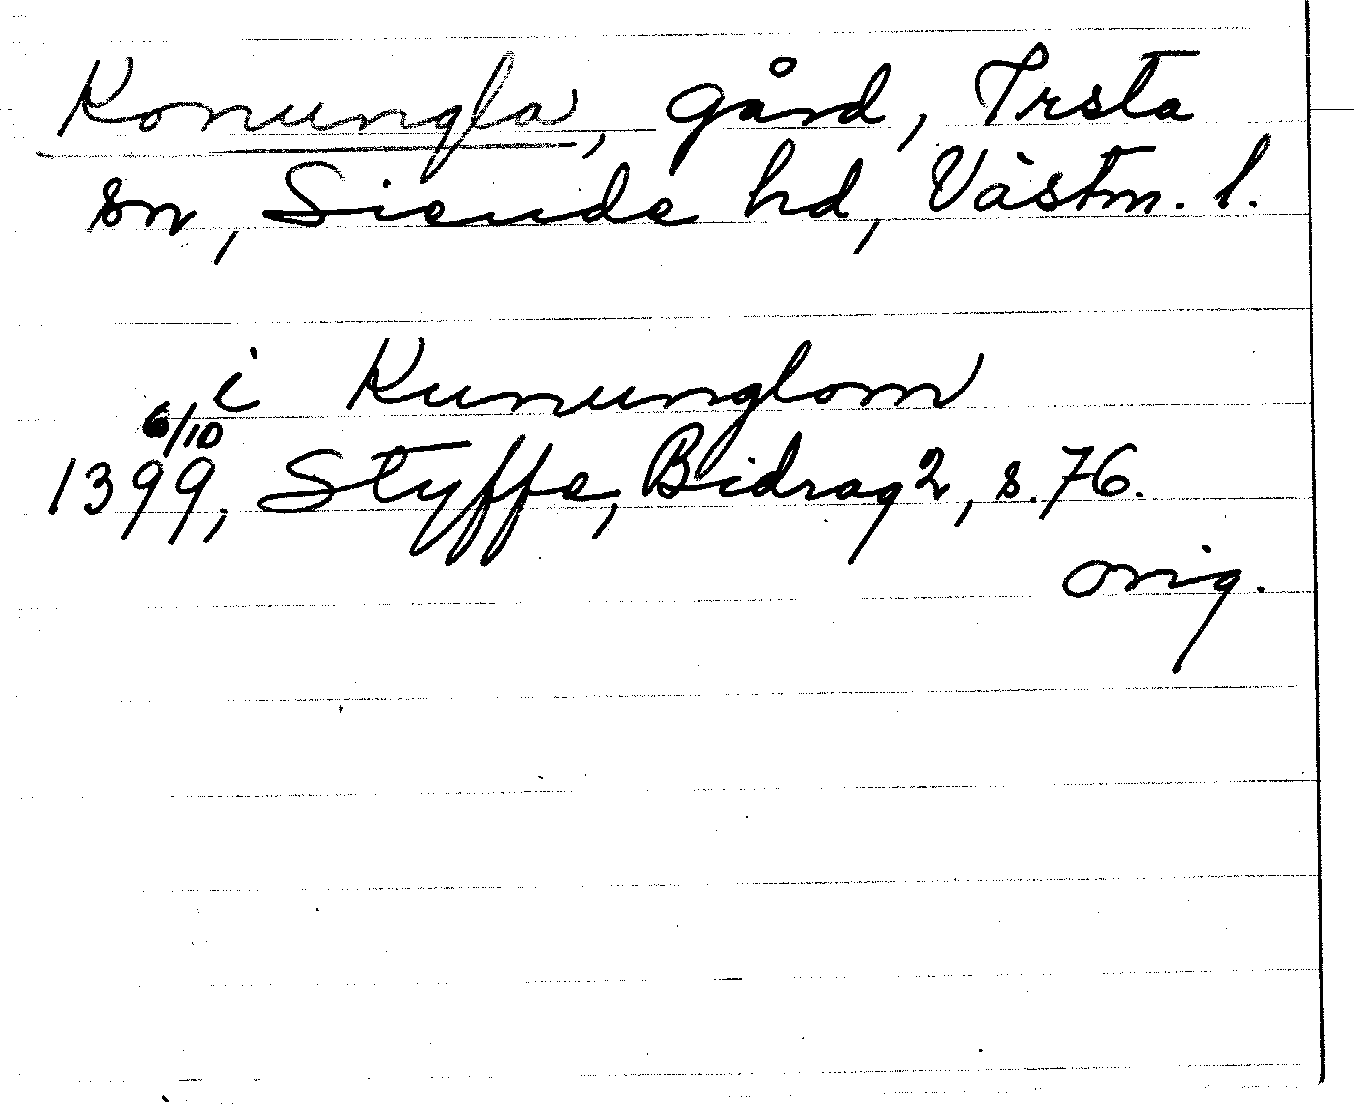 Konungla, gård, Irsta
sn, Siende hd, Västm. l.
i Kununglom
6/10
1399, Styffe, Bidrag 2, s. 76.
orig.